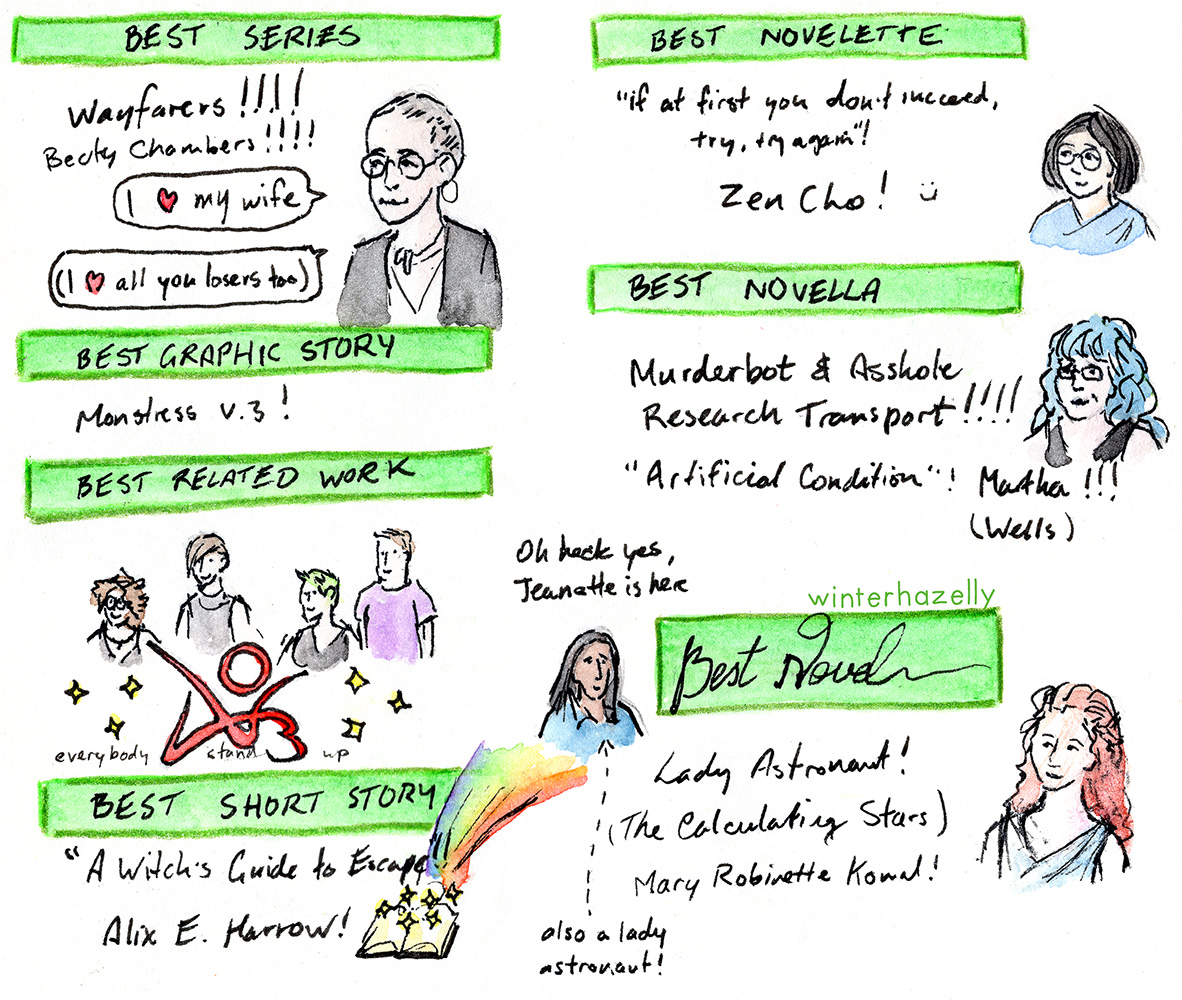 BEST SERIES
Wayfarers!!!!
Becky Chambers!!!!
I ♥ my wife
(I ♥ all you losers too)
BEST GRAPHIC STORY
Monstress v.3!
BEST RELATED WORK
everybody stand up
BEST SHORT STORY
"A Witch's Guide to Escape
Alix E. Harrow!
BEST NOVELETTE
"if at first you don't succeed,
try, try again"!
Zen Cho! :)
BEST NOVELLA
Murderbot & Asshole
Research Transport!!!!
"Artificial Condition"!
Martha!!!
(Wells)
Oh heck yes,
Jeanette is here
winterhazelly
Best Novel
Lady Astronaut!
(The Calculating Stars)
Mary Robinette Kowal!
also a lady
astronaut!